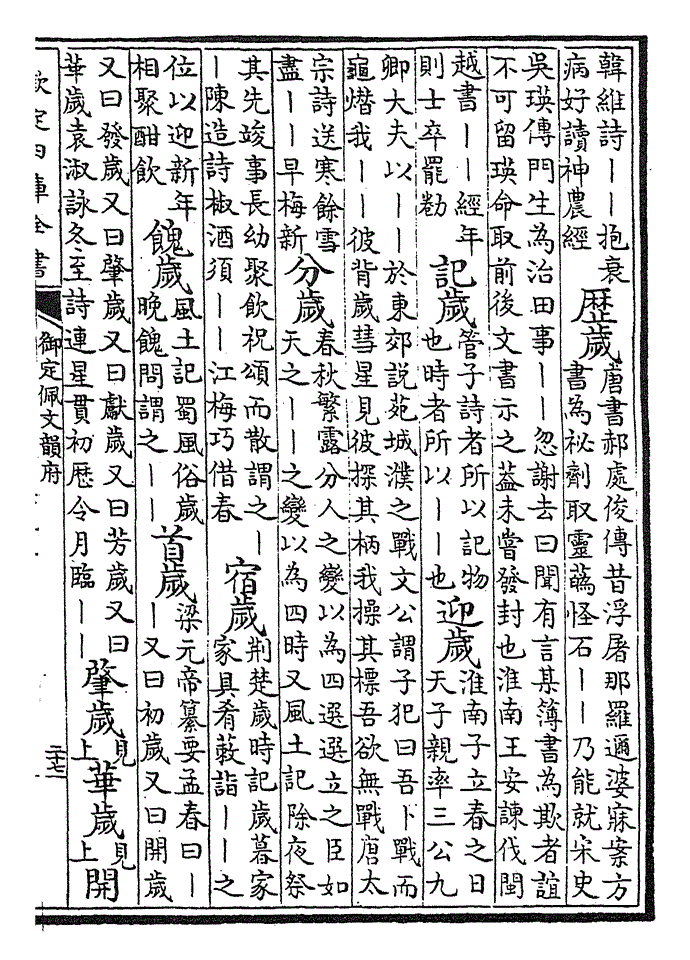 韓維詩丨丨抱衰
病好讀神農經
歴歲
唐書郝處俊傳昔浮屠那羅邇婆寐案方
書為祕劑取靈蘤怪石丨丨乃能就宋史
吳瑛傳門生為治田事丨丨忽謝去曰聞有言某簿書為欺者誼
不可留瑛命取前後文書示之葢未嘗發封也淮南王安諫伐閩
越書丨丨經年
則士卒罷勌
記歲
管子詩者所以記物
也時者所以丨丨也
迎歲
淮南子立春之日
天子親率三公九
卿大夫以丨丨於東郊說苑城濮之戰文公謂子犯曰吾卜戰而
龜熸我丨丨彼背歲彗星見彼探其柄我操其標吾欲無戰唐太
宗詩送寒餘雪
盡丨丨早梅新
分歲
春秋繁露分人之變以為四選選立之臣如
天之丨丨之變以為四時又風土記除夜祭
其先竣事長幼聚飲祝頌而散謂之丨
丨陳造詩椒酒須丨丨江梅巧借春
宿歲
荆楚歲時記歲暮家
家具肴蔌詣丨丨之
位以迎新年
相聚酣飲
餽歲
風土記蜀風俗歲
晚餽問謂之丨丨
首歲
梁元帝纂要孟春曰丨
丨又曰初歲又曰開歲
又曰發歲又曰肇歲又曰獻歲又曰芳歲又曰
華歲袁淑詠冬至詩連星貫初歴令月臨丨丨
肇歲
見上
華歲
見上
開
欽定四庫全書
御定佩文韻府
二十七